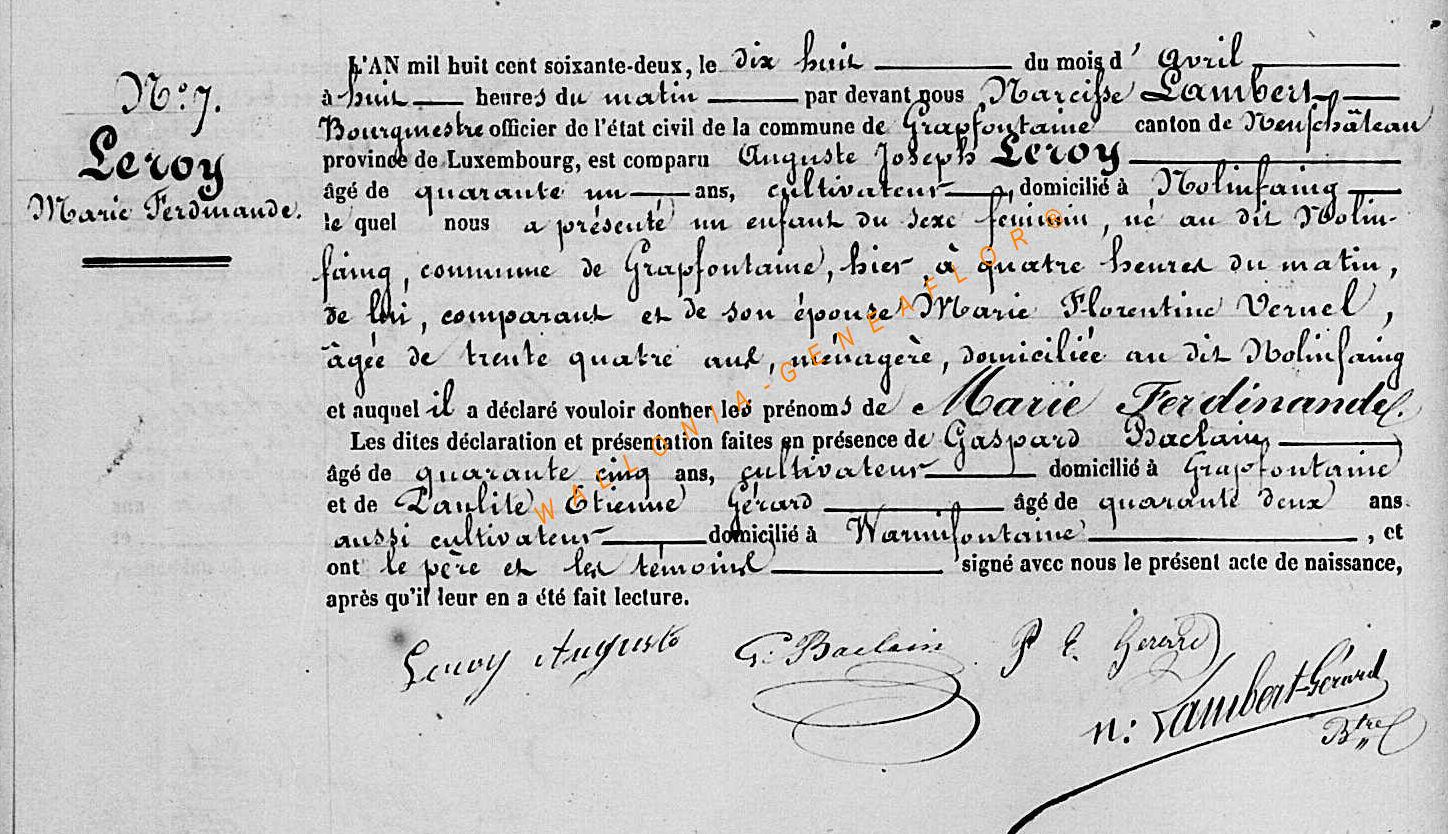 N.° 7.
Leroy
Marie Ferdinande.
L'AN mil huit cent soixante-deux, le dix huit du mois d' Avril
à huit heures du matin par devant nous Narcisse Lambert
Bourgmestre officier de l'état civil de la commune de Grapfontaine canton de Neufchâteau
province de Luxembourg, est comparu Auguste Joseph Leroy
âgé de quarante un ans, cultivateur, domicilié à Nolinfaing
le quel nous a présenté un enfant du sexe féminin, né au dit Nolin-
faing, commune de Grapfontaine, hier, à quatre heures du matin,
de lui, comparant et de son épouse Marie Florentine Vernel,
âgée de trente quatre ans, ménagère, domiciliée au dit Nolinfaing
et auquel il a déclaré vouloir donner les prénoms de Marie Ferdinande.
Les dites déclaration et présentation faites en présence de Gaspard Baclain
âgé de quarante cinq ans, cultivateur domicilié à Grapfontaine
et de Paulite Etienne Gérard âgé de quarante deux ans
aussi cultivateur domicilié à Warmifontaine, et
ont le père et les témoins signé avec nous le présent acte de naissance,
après qu'il leur en a été fait lecture.
Leroy Auguste G. Baclain P E. Gerard
n: Lambert-Gérard
Btre
WALLONIA-GENEAFLOR®